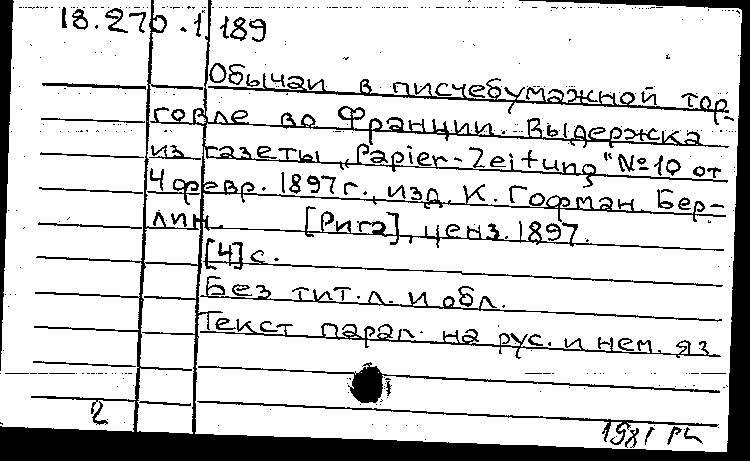 18.270.1 189
Обычаи в писчебумажной тор-
говле во Франции. Выдержка
из газеты „Papier-Zeitung" №10 от
4 февр. 1897 г., изд. К. Гофман. Бер-
лин. [Рига], ценз. 1897.
[4] с.
Без тит. л. и обл.
Текст парал. на рус. и нем. яз.
2
1981